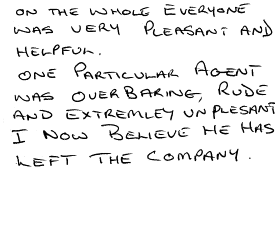 ON THE WHOLE EVERYONE
WAS VERY PLEASANT AND
HELPFUL.
ONE PARTICULAR AGENT
WAS OVERBARING, RUDE
AND EXTREMLEY UNPLESANT
I NOW BELIEVE HE HAS
LEFT THE COMPANY.